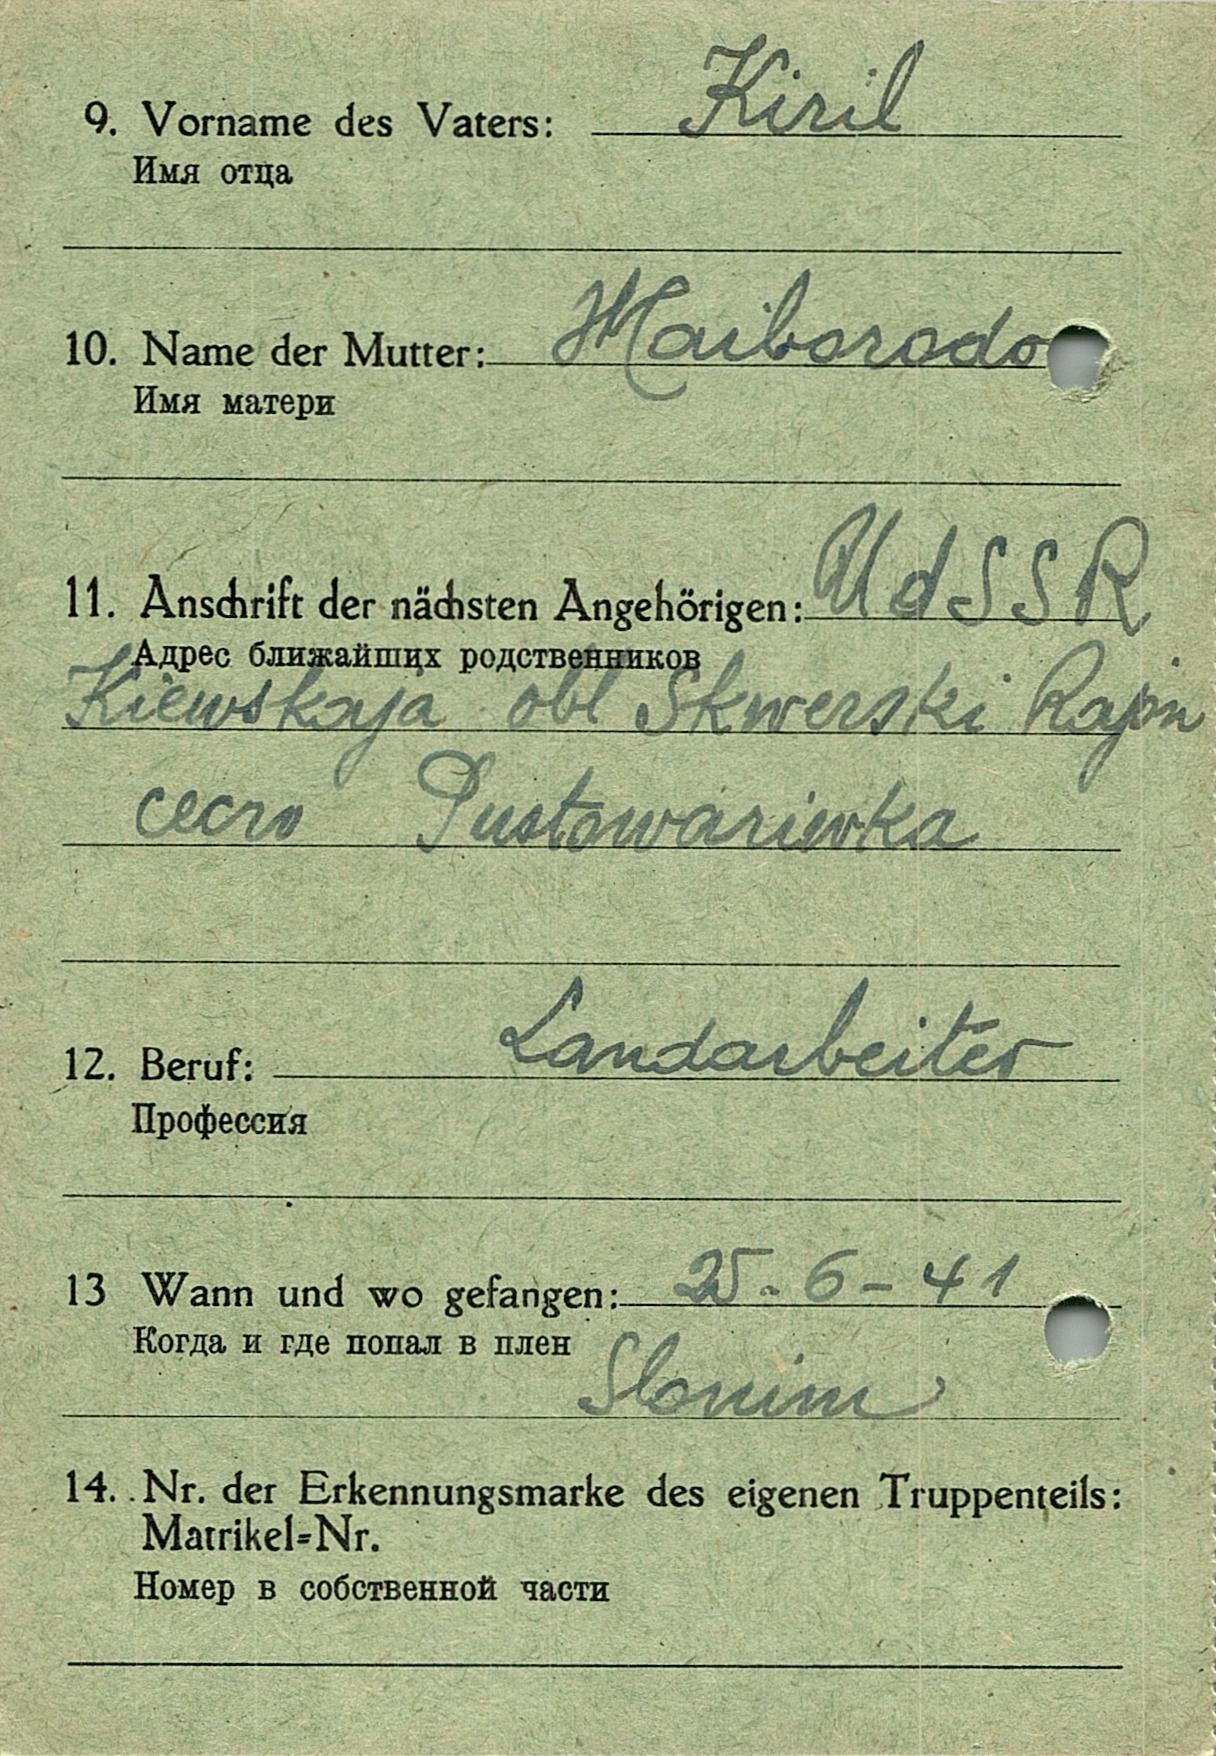 9. Vorname des Vaters: Kiril
Имя отца
10. Name der Mutter: Maiborodo
Имя матери
11. Anschrift der nächsten Angehörigen: UdSSR
Адрес ближайших родственников
Kiewskaja obl Skwerski Rajon
cecro Pustowariwka
12. Beruf: Landarbeiter
Профессия
13 Wann und wo gefangen: 25-6-41
Когда и где попал в плен
Slonim
14. Nr. der Erkennungsmarke des eigenen Truppenteils:
Matrikel=Nr.
Номер в собственной части